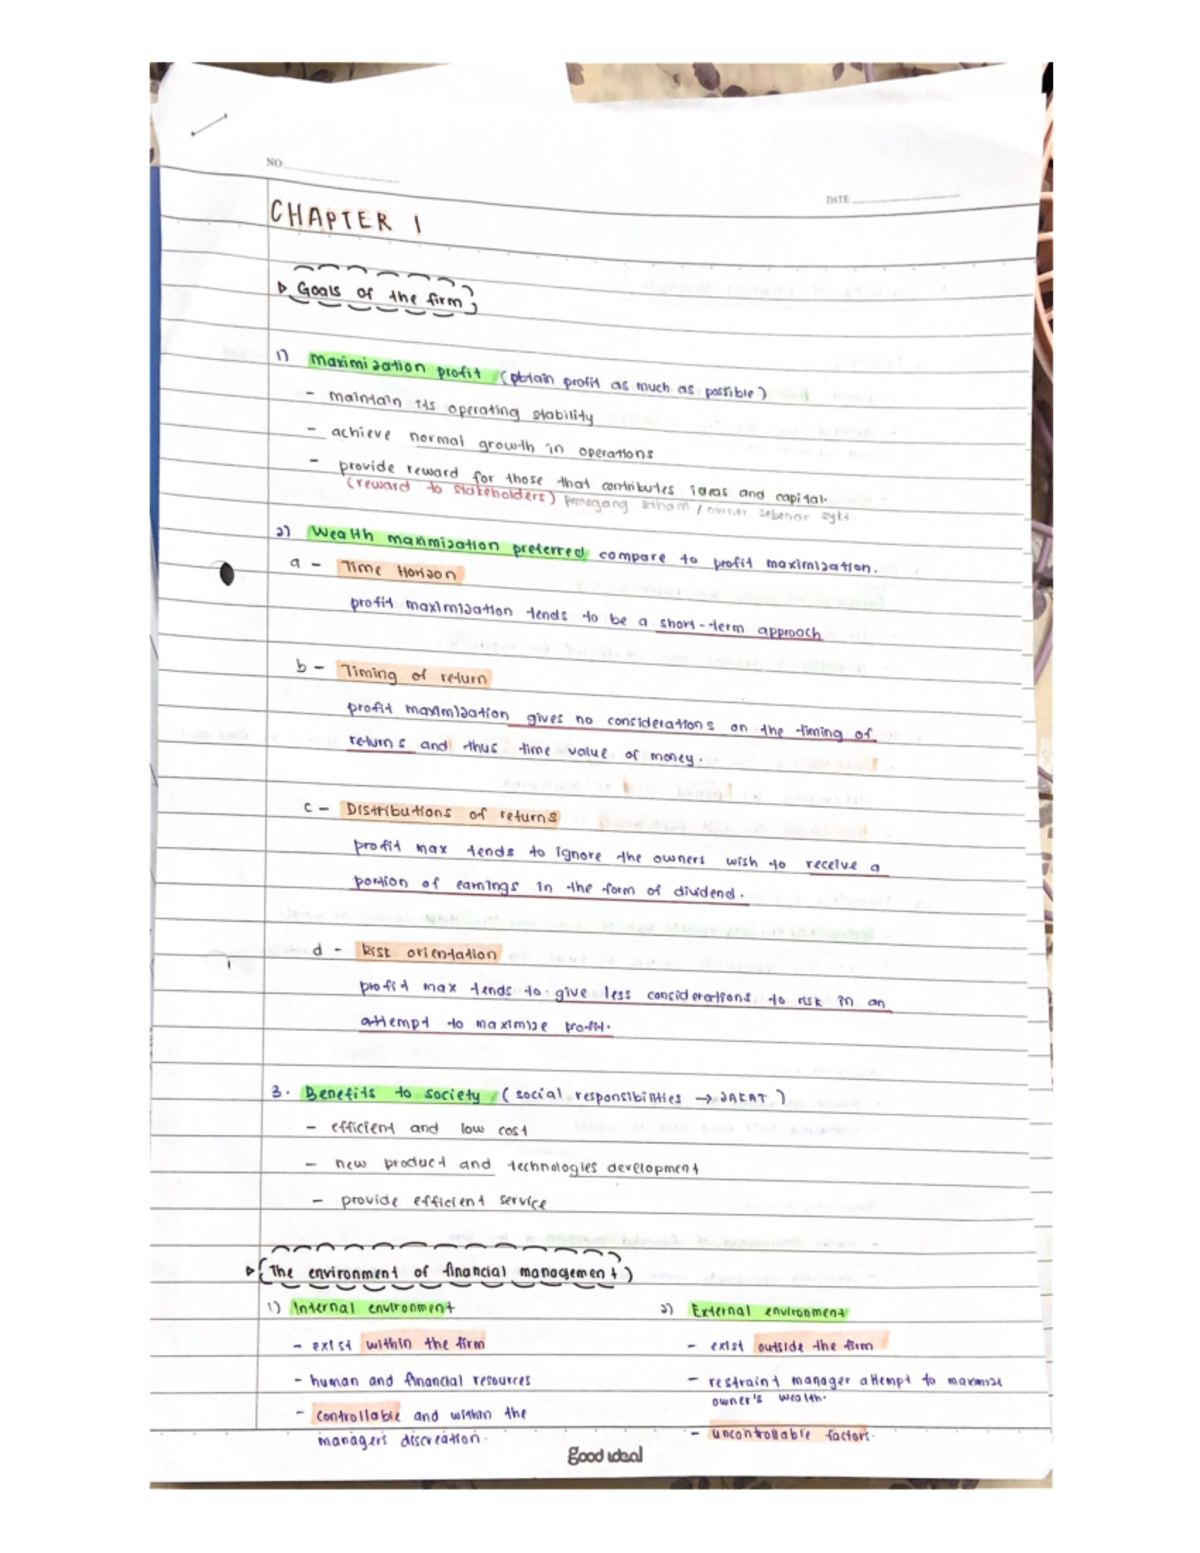 NO
DATE
CHAPTER 1
Goals of the firm
1) Maximization profit (obtain profit as much as possible)
- maintain its operating stability
- achieve normal growth in operations
- provide reward for those that contributes ideas and capital.
(reward to stakeholders) pemegang saham / owner sebenar sykt
2) Wealth maximization preferred compare to profit maximization.
a - Time Horizon
profit maximization tends to be a short-term approach
b - Timing of return
profit maximization gives no considerations on the timing of
returns and thus time value of money.
c - Distributions of returns
profit max tends to ignore the owners wish to receive a
portion of earnings in the form of dividend.
d - Risk orientation
profit max tends to give less considerations to risk in an
attempt to maximize profit.
3. Benefits to society (social responsibilities → ZAKAT)
- efficient and low cost
- new product and technologies development
- provide efficient service
The environment of financial management
1) Internal environment
- exist within the firm
- human and financial resources
- controllable and within the
managers discreation.
2) External environment
- exist outside the firm
- restraint manager attempt to maximize
owner's wealth.
- uncontrollable factors.
good ideal